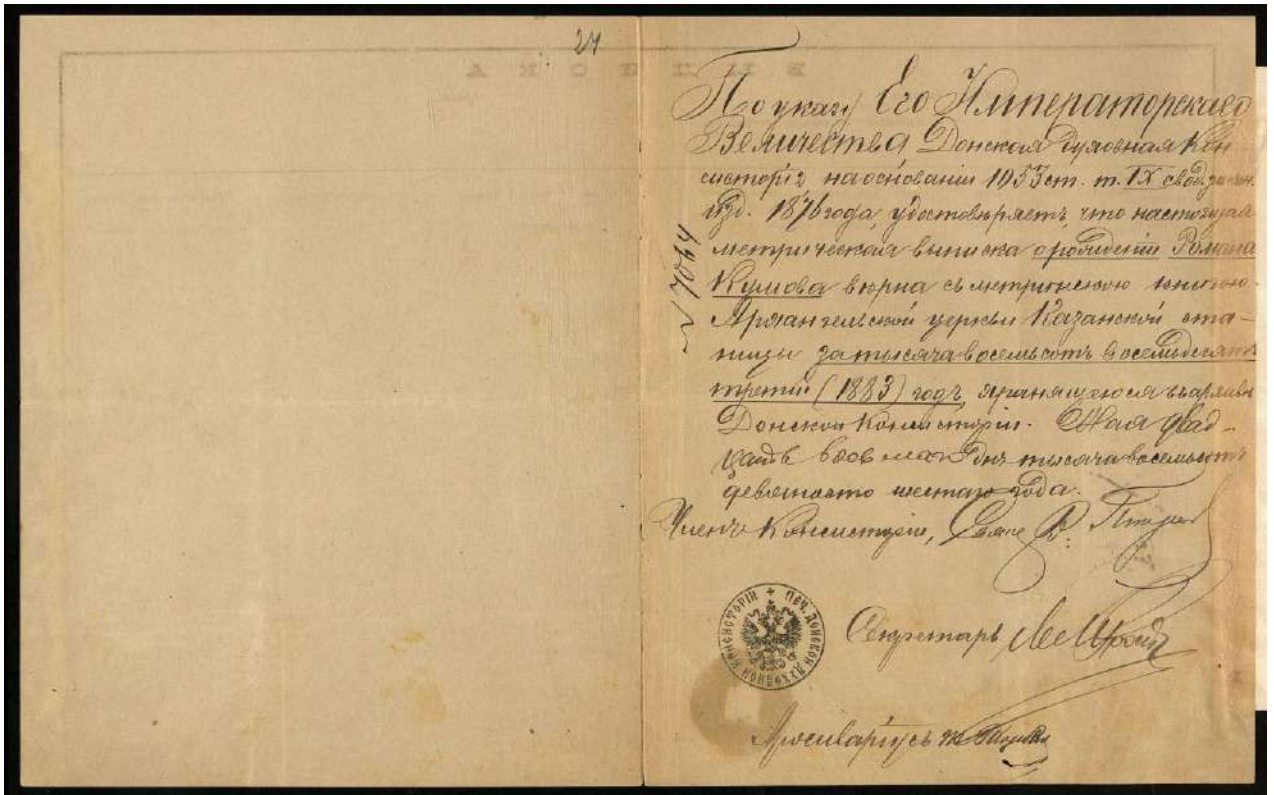 24
По указу Его Императорскаго
Величества Донская Духовная Кон-
систорія на основаніи 1053 ст. т. IX свод. закон.
изд. 1876 года, удостовѣряетъ, что настоящая
метрическая выписка о рожденіи Романа
Кумова вѣрна съ метрическою книгою
Архангельской церкви Казанской ста-
ницы за тысяча восемьсотъ восемьдесятъ
третій (1883) годъ, хранящеюся въ архивѣ
Донской Консисторіи. Мая двад-
цать восьмаго дня тысяча восемьсотъ
девяносто шестаго года.
Членъ Консисторіи,
Секретарь
Архиваріусъ
ПЕЧ. ДОНСКОЙ ДУХОВНОЙ КОНСИСТОРІИ